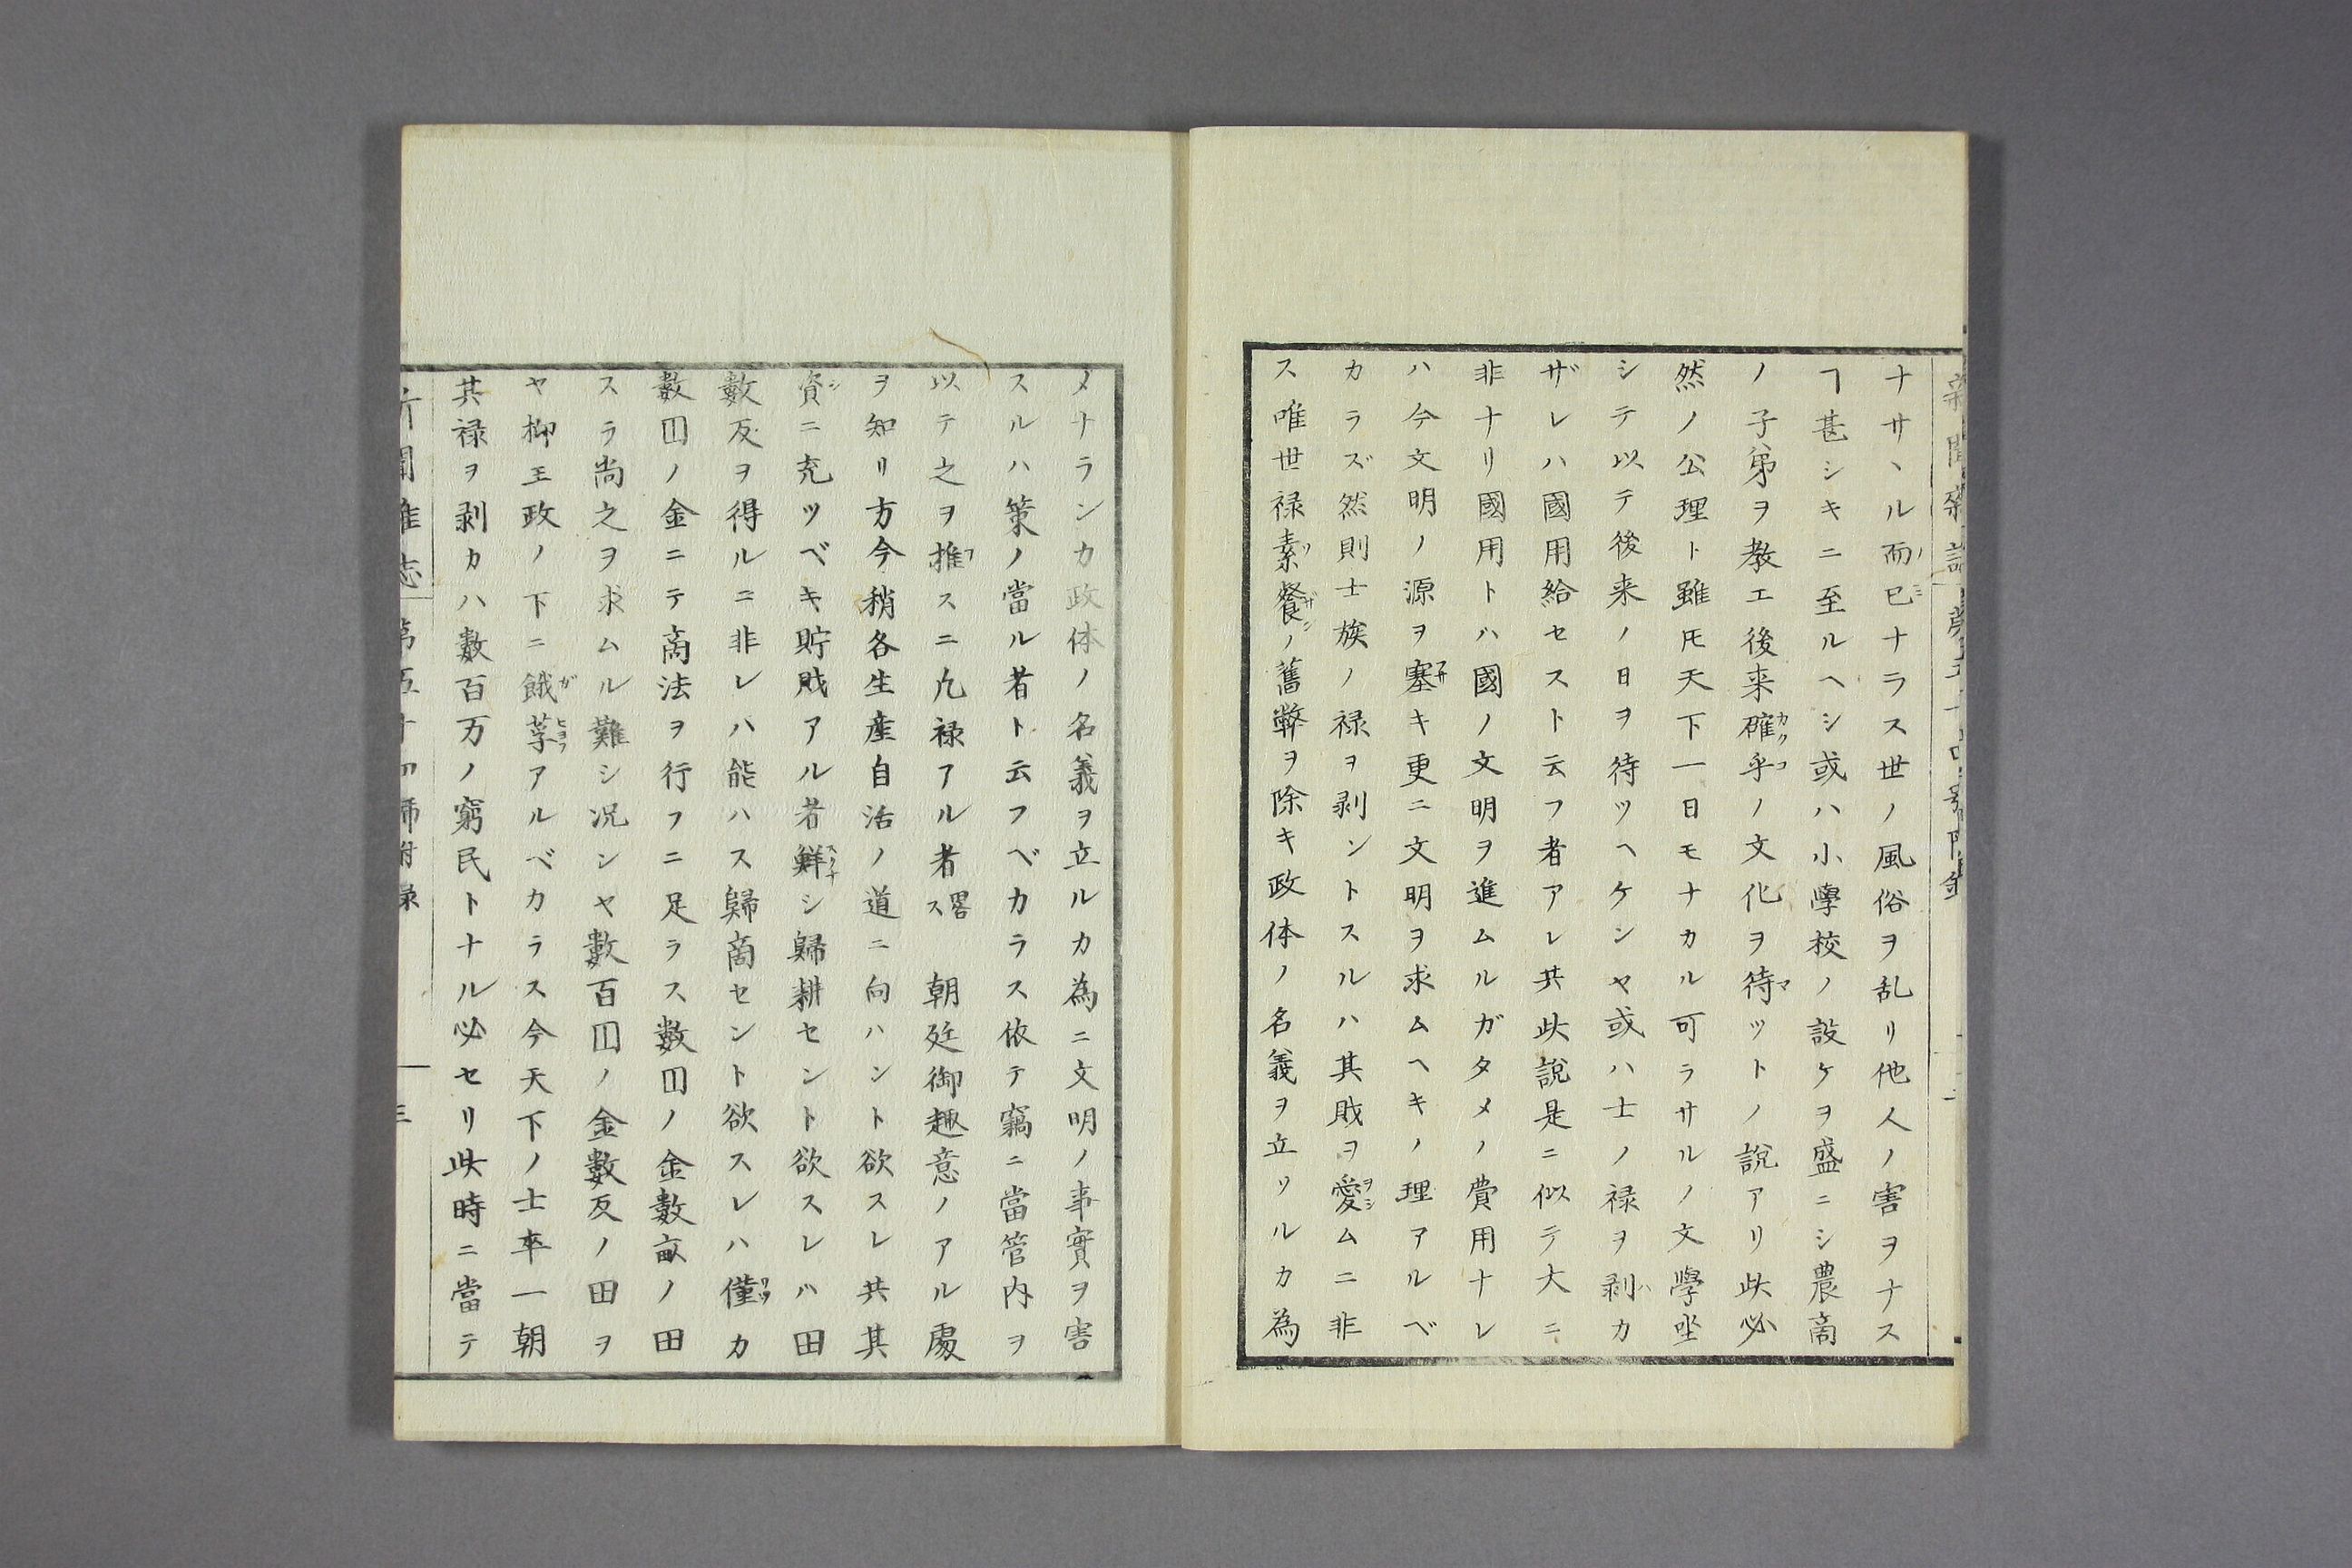 ナサヽル而已ナラス世ノ風俗ヲ乱リ他人ノ害ヲナス
ヿ甚シキニ至ルヘシ或ハ小學校ノ設ケヲ盛ニシ農商
ノ子弟ヲ教エ後来確乎ノ文化ヲ待ツトノ說アリ此必
然ノ公理ト雖𪜈天下一日モナカル可ラサルノ文學坐
シテ以テ後来ノ日ヲ待ツヘケンヤ或ハ士ノ禄ヲ剥カ
ザレハ國用給セスト云フ者アレ共此說是ニ似テ大ニ
非ナリ國用トハ國ノ文明ヲ進ムルガタメノ費用ナレ
ハ今文明ノ源ヲ塞キ更ニ文明ヲ求ムヘキノ理アルベ
カラズ然則士族ノ禄ヲ剥ントスルハ其財ヲ愛ムニ非
ス唯世禄素餐ノ舊弊ヲ除キ政体ノ名義ヲ立ツルカ為
メナランカ政体ノ名義ヲ立ルカ為ニ文明ノ事實ヲ害
スルハ策ノ當ル者ト云フベカラス依テ竊ニ當管内ヲ
以テ之ヲ推スニ凡禄アル者畧ス 朝廷御趣意ノアル處
ヲ知リ方今稍各生産自活ノ道ニ向ハント欲スレ共其
資ニ充ツベキ貯財アル者鮮シ歸耕セント欲スレハ田
數反ヲ得ルニ非レハ能ハス歸商セント欲スレハ僅カ
數囙ノ金ニテ商法ヲ行フニ足ラス數囙ノ金數畝ノ田
スラ尚之ヲ求ムル難シ况ンヤ數百囙ノ金數反ノ田ヲ
ヤ抑王政ノ下ニ餓莩アルベカラス今天下ノ士卒一朝
其禄ヲ剥カハ數百万ノ窮民トナル必セリ此時ニ當テ
新聞雜志 第五十四號附録 三